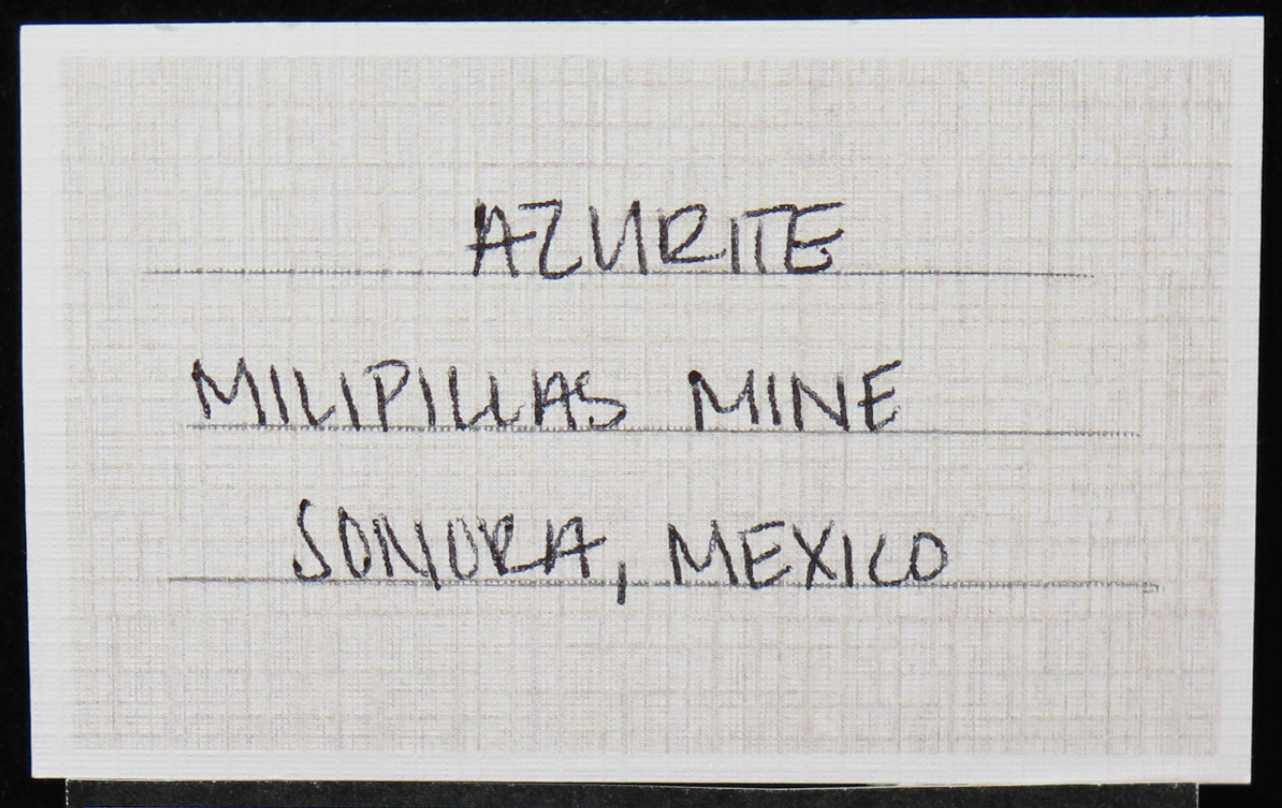 AZURITE
MILIPILLAS MINE
SONORA, MEXICO